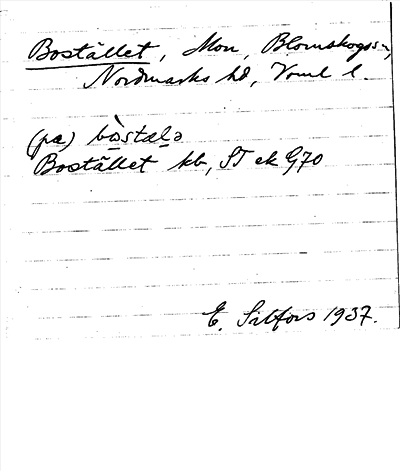 Bostället, Mon, Blomskogs sn,
Nordmarks hd, Vrml l.
(pæ) bòstælə
Bostället kb, ST ek G70
E. Sitfors 1937.